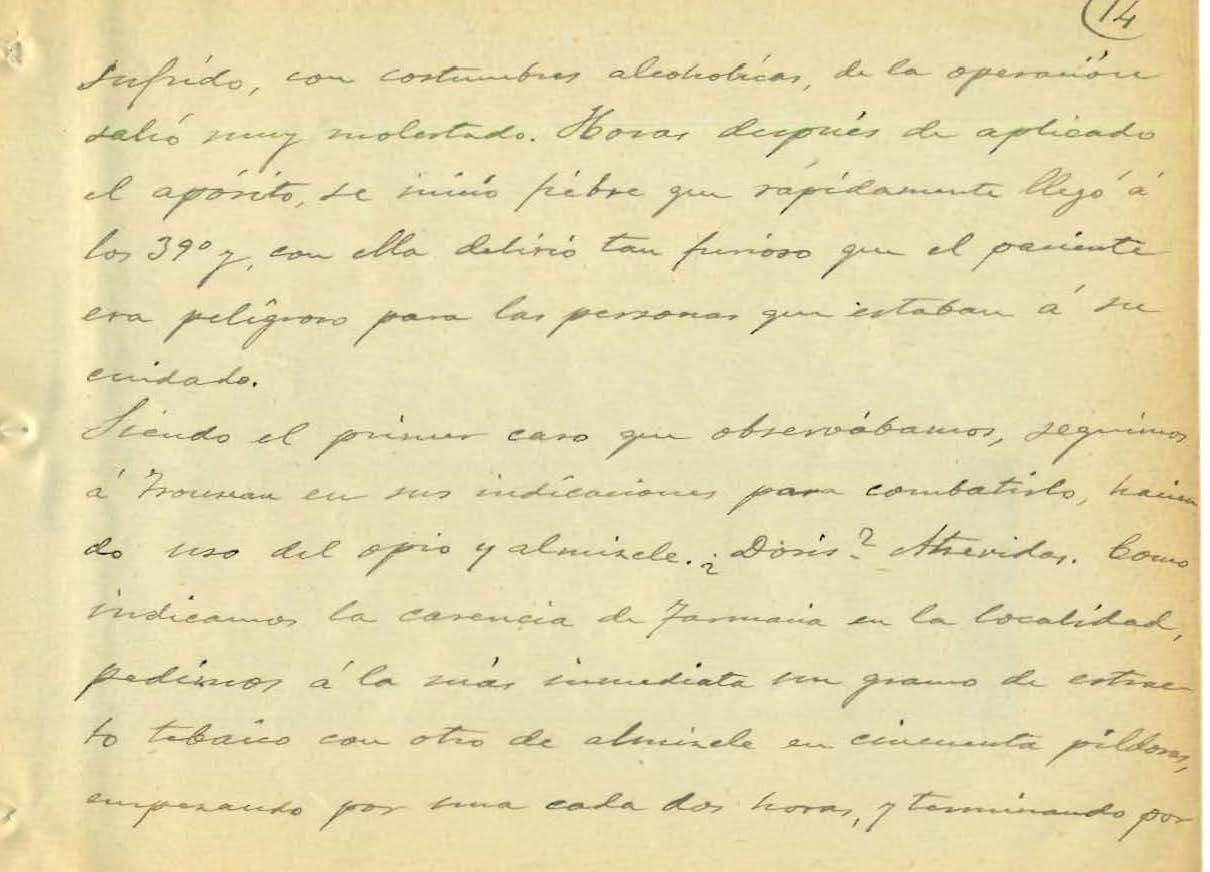 14
sufrido, con costumbres alcohólicas, de la operación
salió muy molestado. Horas después de aplicado
el apósito, se inició fiebre que rápidamente llegó á
los 39º y, con ella delirio tan furioso que el paciente
era peligroso para las personas que estaban á su
cuidado.
Siendo el primer caso que observábamos, seguimos
á Trouseau en sus indicaciones para combatirlo, hacien
do uso del opio y almizcle. ¿Dosis? Atrevidas. Como
indicamos la carencia de Farmacia en la localidad,
pedimos á la más inmediata un gramo de extrac
to tebaico con otro de almizcle en cincuenta píldoras,
empezando por una cada dos horas, y terminando por